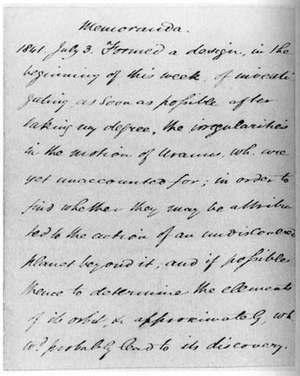 Memoranda.
1841. July 3. Formed a design, in the
beginning of this week, of investi-
gating as soon as possible after
taking my degree, the irregularities
in the motion of Uranus, wh. are
yet unaccounted for; in order to
find whether they may be attribu-
ted to the action of an undiscovered
planet beyond it; and if possible
thence to determine the elements
of its orbit, &c approximately, wh.
wd. probably lead to its discovery.